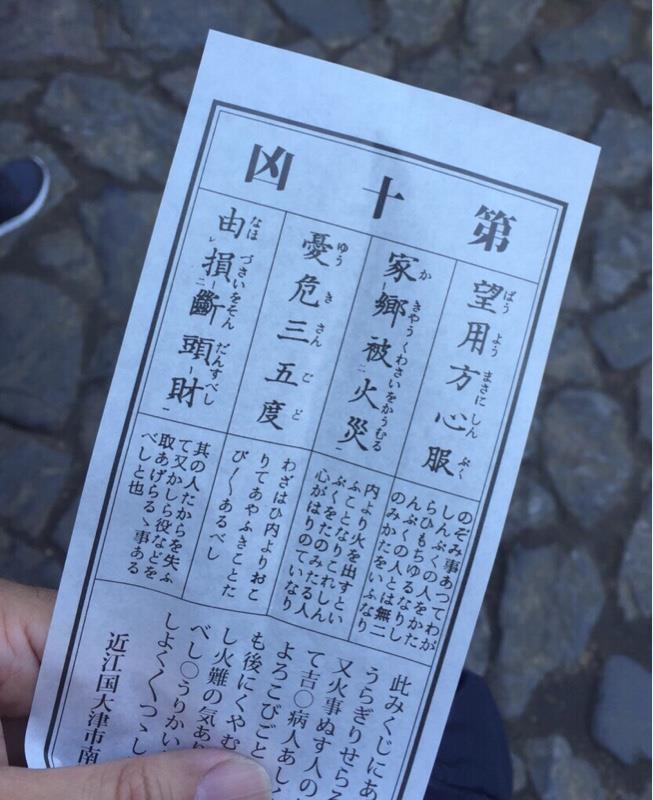 第十凶
望用方心服
ばうようまさにしんぷく
家鄉被火災
かきやうくわさいをかうむる
憂危三五度
ゆうきさんごど
由損斷頭財
なほづさいをそんだんすべし
のぞみ事あつてわが
しんぷくの人をかた
らひもちゆるなりし
んぷくの人とは無二
のみかたをいふなり
内より火を出すとい
ふことなりこれしん
ぷくをたのみたる人
心がはりのていなり
わざはひ内よりおこ
りてあやふきことた
び〳〵あるべし
其の人たからを失ふ
て又かしら役などを
取あげらるゝ事ある
べしと也
此みくじにあ
うらぎりせらる
又火事ぬす人の
て吉〇病人あし
よろこびごと
も後にくやむ
し火難の気あり
べし〇うりかい
しよく〳〵つゝし
近江国大津市南